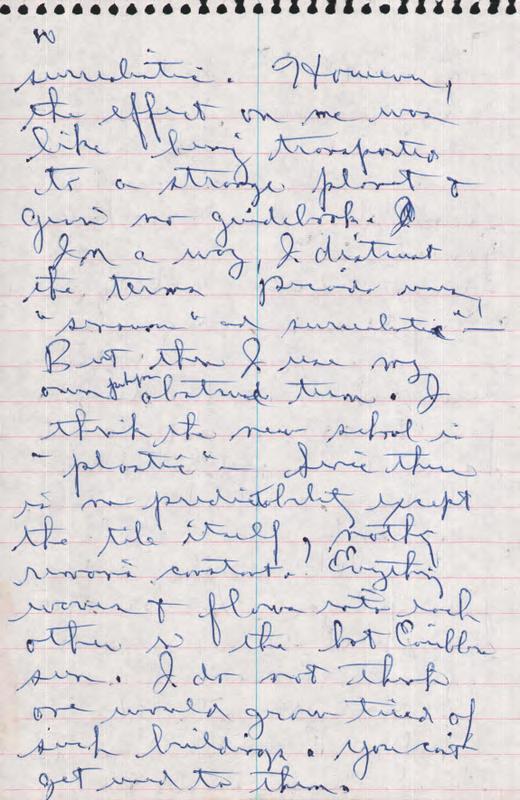 surrealistic. However,
the effect on me was
like being transported
to a strange planet &
given no guidebook.
In a way, I distrust
the terms
" " and surrealistic" —
But then I use my
own abstruse term. I
think the new school is
"plastic" — Since there
is no predictability except
the tile itself, nothing
remains constant. Everything
waves & flows into each
other in the hot Caribbean
sun. I do not think
one would grow tired of
such buildings. You can't
get used to them.